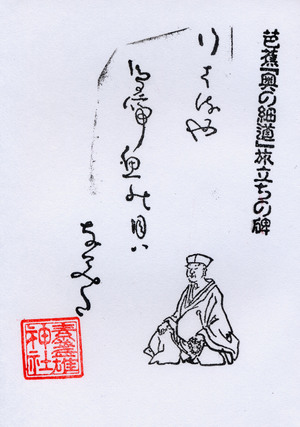 芭蕉「奥の細道」旅立ちの碑
行はるや
鳥啼魚の目ハ
なみだ
素盞雄
神社